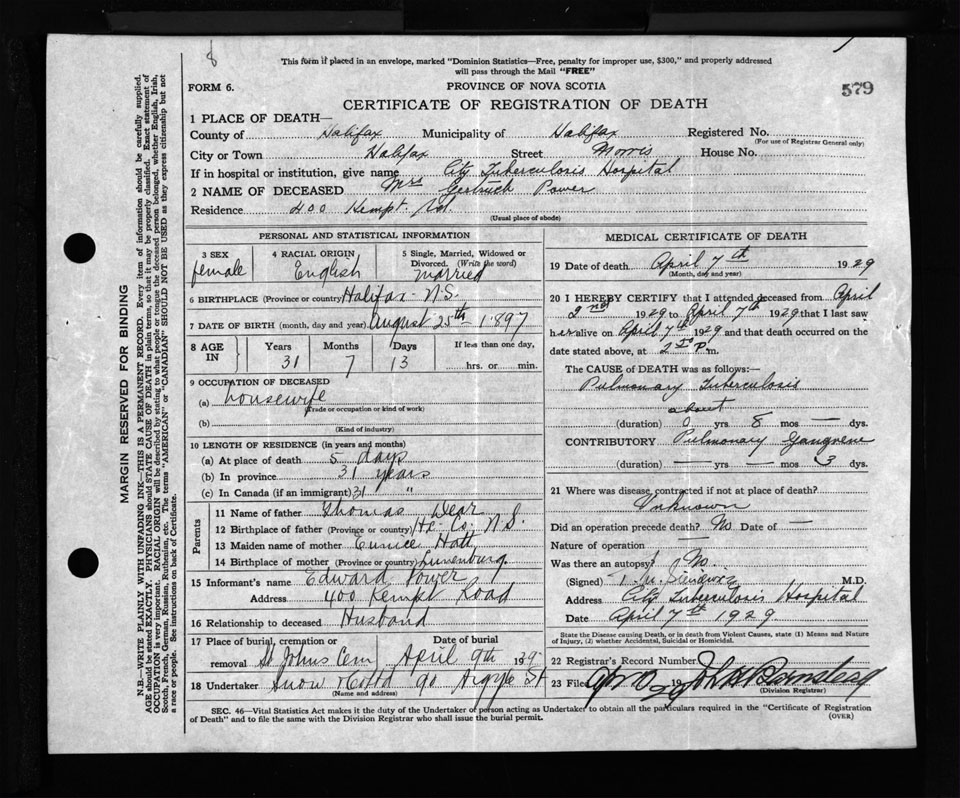 This form if placed in an envelope, marked "Dominion Statistics—Free, penalty for improper use, $300," and properly addressed
will pass through the Mail "FREE"
FORM 6.
PROVINCE OF NOVA SCOTIA
579
CERTIFICATE OF REGISTRATION OF DEATH
1 PLACE OF DEATH—
County of Halifax Municipality of Halifax Registered No.
(For use of Registrar General only)
City or Town Halifax Street Morris House No.
If in hospital or institution, give name City Tuberculosis Hospital
2 NAME OF DECEASED Mrs Gertrude Power
Residence 400 Kempt Rd.
(Usual place of abode)
PERSONAL AND STATISTICAL INFORMATION
3 SEX
female
4 RACIAL ORIGIN
English
5 Single, Married, Widowed or
Divorced. (Write the word)
married
6 BIRTHPLACE (Province or country) Halifax N.S.
7 DATE OF BIRTH (month, day and year) August 25th 1897
8 AGE IN
Years Months Days If less than one day,
31 7 13 hrs. or min.
9 OCCUPATION OF DECEASED
(a) housewife
(Trade or occupation or kind of work)
(b)
(Kind of industry)
10 LENGTH OF RESIDENCE (in years and months)
(a) At place of death 5 days
(b) In province 31 years
(c) In Canada (if an immigrant) 31 "
Parents
11 Name of father Thomas Dear
12 Birthplace of father (Province or country) Hx. Co. N.S.
13 Maiden name of mother Eunice Hatt
14 Birthplace of mother (Province or country) Lunenburg.
15 Informant's name Edward Power
Address 400 Kempt Road
16 Relationship to deceased Husband
17 Place of burial, cremation or Date of burial
removal St Johns Cem April 9th 1929
18 Undertaker Snow & Co Ltd 90 Argyle St
(Name and address)
MEDICAL CERTIFICATE OF DEATH
19 Date of death April 7th 1929
(Month, day and year)
20 I HEREBY CERTIFY that I attended deceased from April
2nd 1929 to April 7th 1929 that I last saw
her alive on April 7th 1929 and that death occurred on
the date stated above, at 2 P.m.
The CAUSE of DEATH was as follows:—
Pulmonary Tuberculosis
about
(duration) 0 yrs 8 mos — dys.
CONTRIBUTORY Pulmonary Gangrene
(duration) — yrs — mos 3 dys.
21 Where was disease contracted if not at place of death?
Unknown
Did an operation precede death? No Date of —
Nature of operation —
Was there an autopsy? No.
(Signed) M.D.
Address City Tuberculosis Hospital
Date April 7th 1929.
State the Disease causing Death, or in death from Violent Causes, state (1) Means and Nature
of Injury, (2) whether Accidental, Suicidal or Homicidal.
22 Registrar's Record Number
23 Filed 19
(Division Registrar)
SEC. 46—Vital Statistics Act makes it the duty of the Undertaker or person acting as Undertaker to obtain all the particulars required in the "Certificate of Registration
of Death" and to file the same with the Division Registrar who shall issue the burial permit.
(OVER)
MARGIN RESERVED FOR BINDING
N.B.—WRITE PLAINLY WITH UNFADING INK—THIS IS A PERMANENT RECORD. Every item of information should be carefully supplied.
AGE should be stated EXACTLY. PHYSICIANS should STATE CAUSE OF DEATH in plain terms, so that it may be properly classified. Exact statement of
OCCUPATION is very important. RACIAL ORIGIN will be described by stating to what people or tongue the deceased person belonged, whether English, Irish,
Scotch, French, German, Russian, Ruthenian, etc. The terms "AMERICAN" or "CANADIAN" SHOULD NOT BE USED as they express citizenship but not
a race or people. See instructions on back of Certificate.